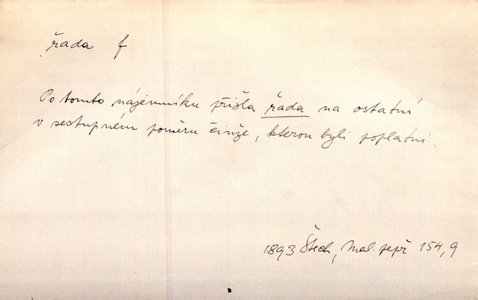 řada f
Po tomto nájemníku přišla řada na ostatní
v sestupném poměru činže, kterou byli poplatni.
1893 Štech, Mal. pepř 154,9